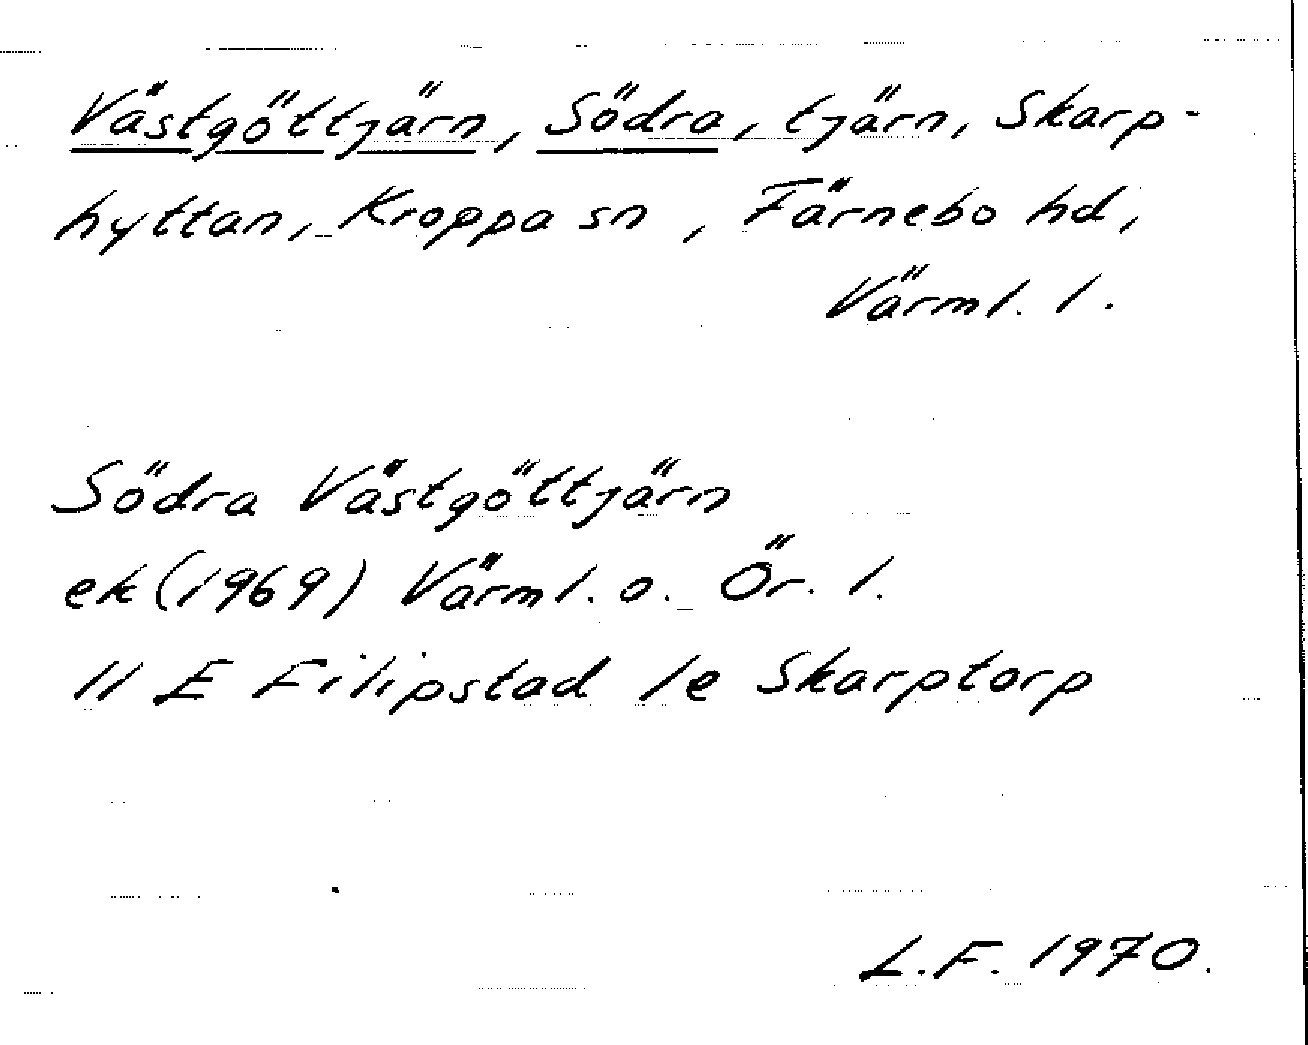 Västgöttjärn, Södra, tjärn, Skarp-
hyttan, Kroppa sn, Färnebo hd,
Värml. l.
Södra Västgöttjärn
ek (1969) Värml. o. Ör. l.
11 E Filipstad 1e Skarptorp
L.F. 1970.